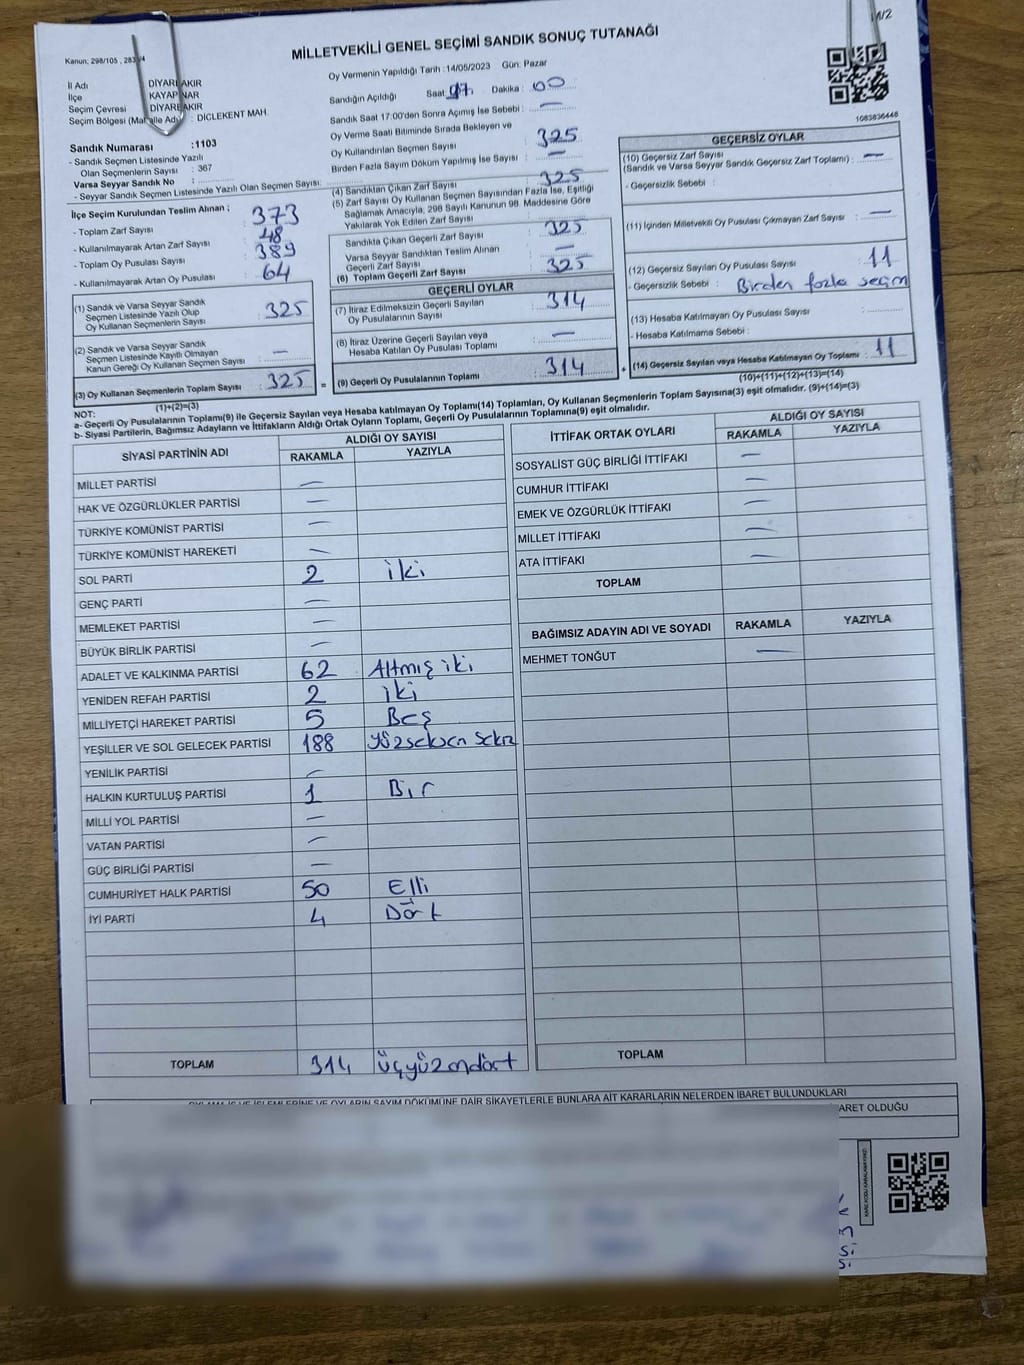 11/2
MİLLETVEKİLİ GENEL SEÇİMİ SANDIK SONUÇ TUTANAĞI
Kanun, 298/105
İl Adı DİYARBAKIR
İlçe KAYAPINAR
Seçim Çevresi DİYARBAKIR
Seçim Bölgesi (Mahalle Adı) : DİCLEKENT MAH.
Sandık Numarası :1103
- Sandık Seçmen Listesinde Yazılı
Olan Seçmenlerin Sayısı : 367
Varsa Seyyar Sandık No :
- Seyyar Sandık Seçmen Listesinde Yazılı Olan Seçmen Sayısı:
İlçe Seçim Kurulundan Teslim Alınan ;
- Toplam Zarf Sayısı : 373
- Kullanılmayarak Artan Zarf Sayısı : 48
- Toplam Oy Pusulası Sayısı : 389
- Kullanılmayarak Artan Oy Pusulası : 64
(1) Sandık ve Varsa Seyyar Sandık
Seçmen Listesinde Yazılı Olup
Oy Kullanan Seçmenlerin Sayısı : 325
(2) Sandık ve Varsa Seyyar Sandık
Seçmen Listesinde Kayıtlı Olmayan
Kanun Gereği Oy Kullanan Seçmen Sayısı : —
(3) Oy Kullanan Seçmenlerin Toplam Sayısı : 325 =
(1)+(2)=(3)
Oy Vermenin Yapıldığı Tarih :14/05/2023 Gün: Pazar
Sandığın Açıldığı Saat : 17 Dakika : 00
Sandık Saat 17:00'den Sonra Açımış İse Sebebi : —
Oy Verme Saati Bitiminde Sırada Bekleyen ve
Oy Kullandırılan Seçmen Sayısı : 325
Birden Fazla Sayım Döküm Yapılmış İse Sayısı : —
(4) Sandıktan Çıkan Zarf Sayısı : 325
(5) Zarf Sayısı Oy Kullanan Seçmen Sayısından Fazla İse, Eşitliği
Sağlamak Amacıyla, 298 Sayılı Kanunun 98. Maddesine Göre
Yakılarak Yok Edilen Zarf Sayısı :
Sandıkta Çıkan Geçerli Zarf Sayısı : 325
Varsa Seyyar Sandıktan Teslim Alınan
Geçerli Zarf Sayısı : —
(6) Toplam Geçerli Zarf Sayısı : 325
GEÇERLİ OYLAR
(7) İtiraz Edilmeksizin Geçerli Sayılan
Oy Pusulalarının Sayısı : 314
(8) İtiraz Üzerine Geçerli Sayılan veya
Hesaba Katılan Oy Pusulası Toplamı : —
(9) Geçerli Oy Pusulalarının Toplamı : 314 +
1083836448
GEÇERSİZ OYLAR
(10) Geçersiz Zarf Sayısı
(Sandık ve Varsa Seyyar Sandık Geçersiz Zarf Toplamı) : —
- Geçersizlik Sebebi :
(11) İçinden Milletvekili Oy Pusulası Çıkmayan Zarf Sayısı : —
(12) Geçersiz Sayılan Oy Pusulası Sayısı : 11
- Geçersizlik Sebebi : Birden fazla seçim
(13) Hesaba Katılmayan Oy Pusulası Sayısı :
- Hesaba Katılmama Sebebi :
(14) Geçersiz Sayılan veya Hesaba Katılmayan Oy Toplamı : 11
(10)+(11)+(12)+(13)=(14)
NOT:
a- Geçerli Oy Pusulalarının Toplamı(9) ile Geçersiz Sayılan veya Hesaba katılmayan Oy Toplamı(14) Toplamları, Oy Kullanan Seçmenlerin Toplam Sayısına(3) eşit olmalıdır. (9)+(14)=(3)
b- Siyasi Partilerin, Bağımsız Adayların ve İttifakların Aldığı Ortak Oyların Toplamı, Geçerli Oy Pusulalarının Toplamına(9) eşit olmalıdır.
SİYASİ PARTİNİN ADI ALDIĞI OY SAYISI
RAKAMLA YAZIYLA
MİLLET PARTİSİ —
HAK VE ÖZGÜRLÜKLER PARTİSİ —
TÜRKİYE KOMÜNİST PARTİSİ —
TÜRKİYE KOMÜNİST HAREKETİ —
SOL PARTİ 2 iki
GENÇ PARTİ —
MEMLEKET PARTİSİ —
BÜYÜK BİRLİK PARTİSİ —
ADALET VE KALKINMA PARTİSİ 62 Altmış iki
YENİDEN REFAH PARTİSİ 2 iki
MİLLİYETÇİ HAREKET PARTİSİ 5 Beş
YEŞİLLER VE SOL GELECEK PARTİSİ 188 yüzseksen sekiz
YENİLİK PARTİSİ —
HALKIN KURTULUŞ PARTİSİ 1 Bir
MİLLİ YOL PARTİSİ —
VATAN PARTİSİ —
GÜÇ BİRLİĞİ PARTİSİ —
CUMHURİYET HALK PARTİSİ 50 Elli
İYİ PARTİ 4 Dört
TOPLAM 314 üçyüzondört
İTTİFAK ORTAK OYLARI ALDIĞI OY SAYISI
RAKAMLA YAZIYLA
SOSYALİST GÜÇ BİRLİĞİ İTTİFAKI —
CUMHUR İTTİFAKI —
EMEK VE ÖZGÜRLÜK İTTİFAKI —
MİLLET İTTİFAKI —
ATA İTTİFAKI —
TOPLAM
BAĞIMSIZ ADAYIN ADI VE SOYADI RAKAMLA YAZIYLA
MEHMET TONĞUT —
TOPLAM
OYLAMA İŞ VE İŞLEMLERİNE VE OYLARIN SAYIM DÖKÜMÜNE DAİR ŞİKAYETLERLE BUNLARA AİT KARARLARIN NELERDEN İBARET BULUNDUKLARI
BARET OLDUĞU